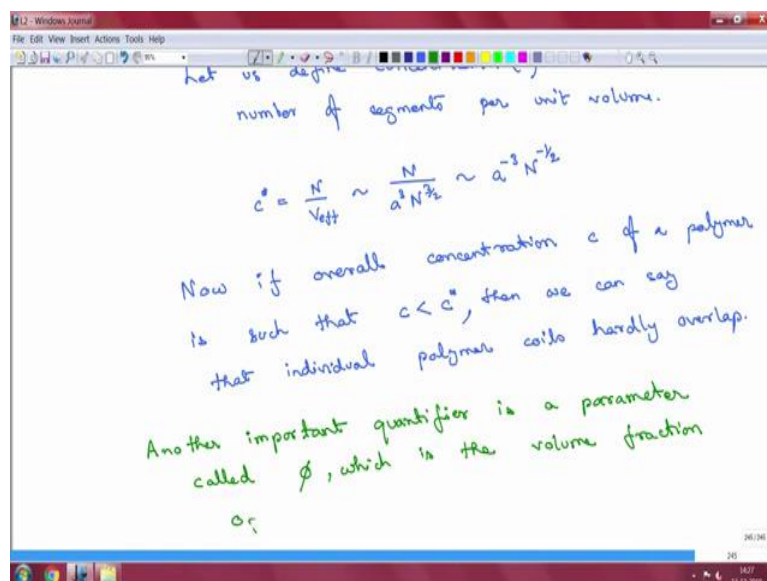 L2 - Windows Journal
File Edit View Insert Actions Tools Help
Let us define
number of segments per unit volume.
c* = N/Veff ~ N/a³N^3/2 ~ a^-3 N^-1/2
Now if overall concentration c of a polymer
is such that c < c*, then we can say
that individual polymer coils hardly overlap.
Another important quantifier is a parameter
called ϕ, which is the volume fraction
246/246
245
14:27